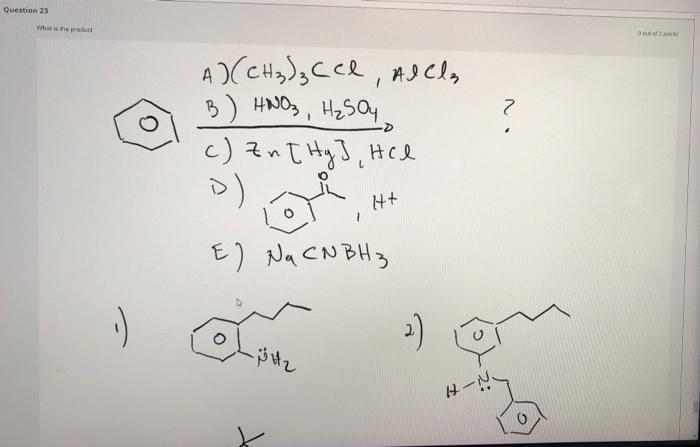 Question 23
What is the product
0 out of 2 points
A) (CH3)3CCl, AlCl3
B) HNO3, H2SO4
?
C) Zn[Hg], HCl
D) O , H+
E) NaCNBH3
1) NH2
2)
H-N